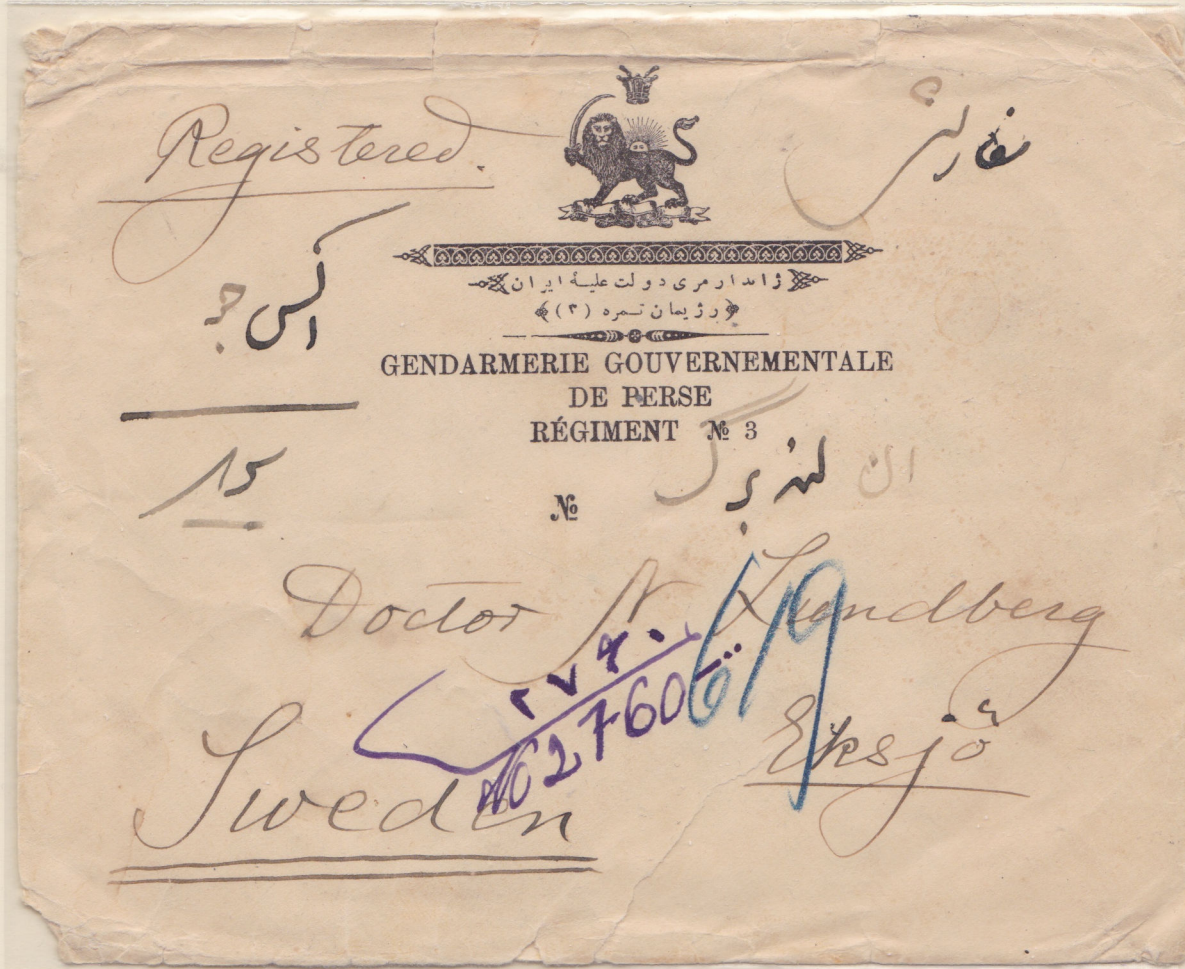 Registered.
سفارش
ژاندارمری دولت علیهٔ ایران
رژیمان نمره (۳)
GENDARMERIE GOUVERNEMENTALE
DE PERSE
RÉGIMENT № 3
لندبرگ
№
Doctor N Lundberg
619
۲۷۶۰
№ 2760
Eksjö
Sweden